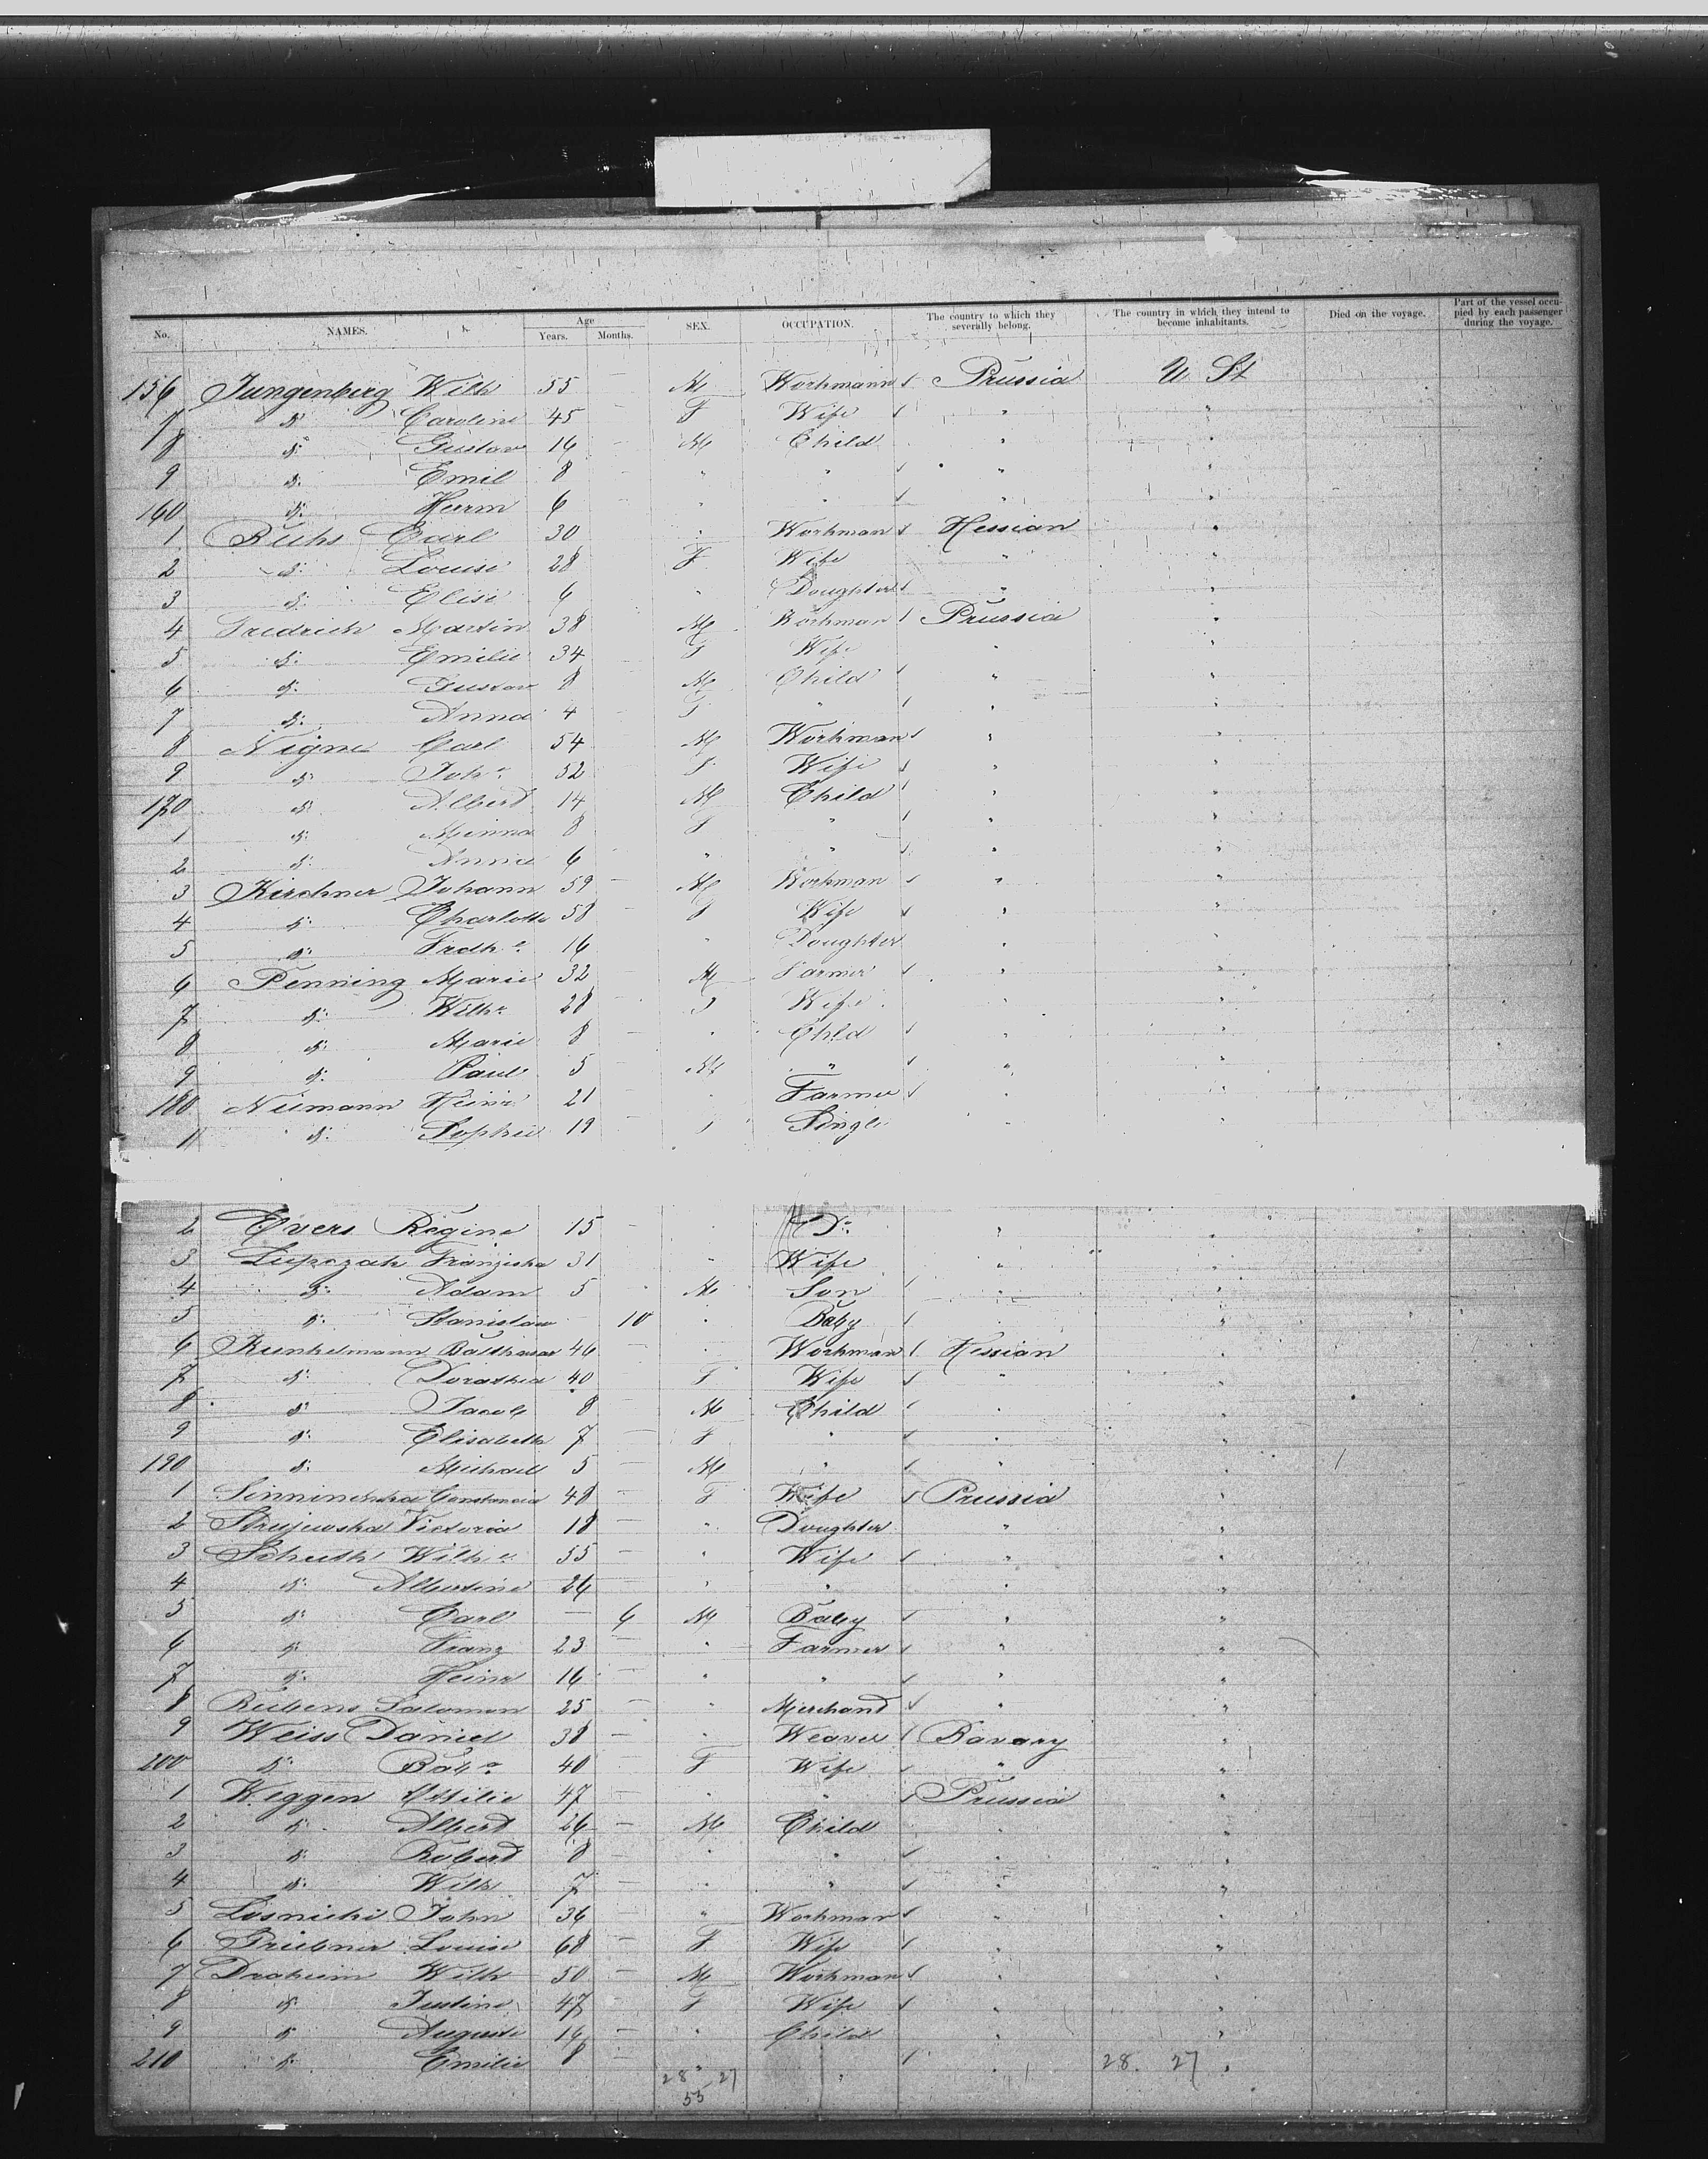 No. NAMES. Age Years. Months. SEX. OCCUPATION. The country to which they severally belong. The country in which they intend to become inhabitants. Died on the voyage. Part of the vessel occupied by each passenger during the voyage.
156 Jungenberg Wilh 55 M Workmann Prussia U St
7 do Caroline 45 F Wife " "
8 do Gustav 14 M Child " "
9 do Emil 8 " " " "
160 do Herm 6 " " " "
1 Ruhs Carl 30 " Workman Hessian "
2 do Louise 28 F Wife " "
3 do Elise 6 " Doughter " "
4 Fredrich Martin 38 M Workman Prussia "
5 do Emilie 34 F Wife " "
6 do Gustav 8 M Child " "
7 do Anna 4 F " " "
8 Carl 54 M Workman " "
9 do Joh.e 52 F Wife " "
170 do Albert 14 M Child " "
1 do Minna 8 F " " "
2 do Anna 6 " " " "
3 Kirschner Johann 59 M Workman " "
4 do Charlotte 58 F Wife " "
5 do Frdk.e 16 " Doughter " "
6 Penning Marie 32 M Farmer " "
7 do Wilh.e 28 F Wife " "
8 do Marie 8 " Chld " "
9 do Paul 5 M " " "
180 Niemann Heinr 21 " Farmer " "
1 do Sophie 19 F Single " "
2 Evers Regine 15 " Do " "
3 Lupczak Franziska 31 " Wife " "
4 do Adam 5 M Son " "
5 do Stanislaw 10 " Baby " "
6 Kunkelmann Balthasar 46 " Workman Hessian "
7 do Dorathea 40 F Wife " "
8 do Jacob 8 M Child " "
9 do Elisabeth 7 F " " "
190 do Michael 5 M " " "
1 Constancia 48 F Wife Prussia "
2 Victoria 18 " Doughter " "
3 Wilh.e 55 " Wife " "
4 do Albertine 26 " " " "
5 do Carl — 6 M Baby " "
6 do Franz 23 " Farmer " "
7 do Heinr 16 " " " "
8 Rubens Salomon 25 " Merchand " "
9 Weiss Daniel 38 " Weaver Bavary "
200 do Bab.e 40 F Wife " "
1 Weggen Ottilie 47 " " Prussia "
2 do Albert 26 M Child " "
3 do Robert 8 " " " "
4 do Wilh 7 " " " "
5 Losnicki John 36 " Workman " "
6 Priebner Louise 68 F Wife " "
7 Draheim Wilh 50 M Workman " "
8 do Justine 47 F Wife " "
9 do Auguste 14 " Child " "
210 do Emilie 8 " " " "
28 27 28. 27
55